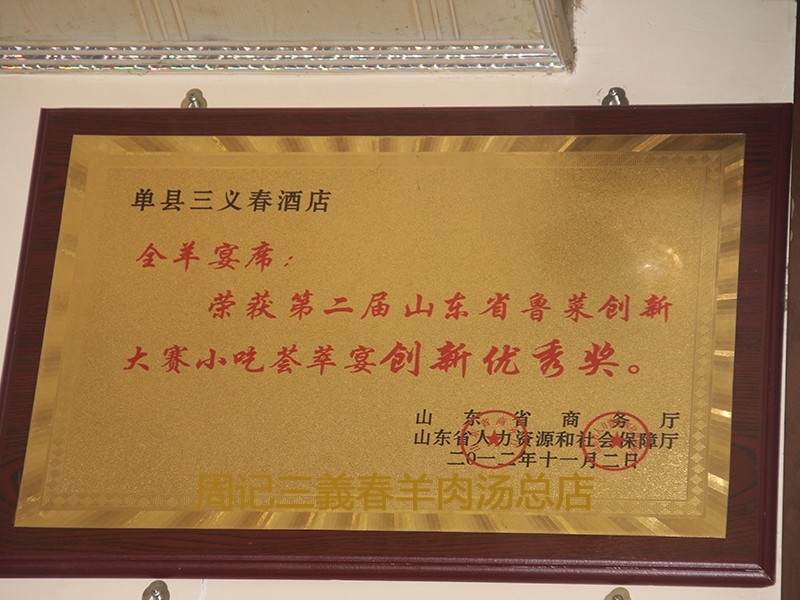 单县三义春酒店
全羊宴席：
荣获第二届山东省鲁菜创新
大赛小吃荟萃宴创新优秀奖。
山东省商务厅
山东省人力资源和社会保障厅
二〇一二年十一月二日
周记三義春羊肉汤总店